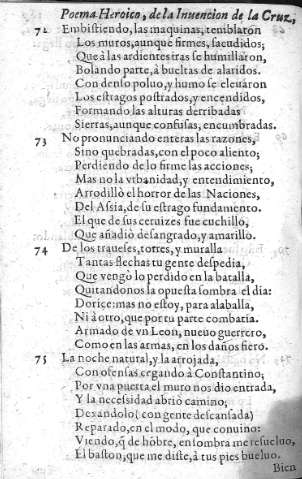 Poema Heroico, de la Inuencion de la Cruz,
72 Embistiendo, las maquinas, temblaron
Los muros, aunque firmes, sacudidos;
Que à las ardientes iras se humillaron,
Bolando parte, à bueltas de alaridos.
Con denso poluo, y humo se eleuaron
Los estragos postrados, y encendidos,
Formando las alturas derribadas
Sierras, aunque confusas, encumbradas.
73 No pronunciando enteras las razones,
Sino quebradas, con el poco aliento;
Perdiendo de lo firme las acciones;
Mas no la vrbanidad, y entendimiento,
Arrodillò el horror de las Naciones,
Del Assia, de su estrago fundamento.
El que de sus ceruizes fue cuchillo,
Que añadiò desangrado, y amarillo.
74 De los traueses, torres, y muralla
Tantas flechas tu gente despedia,
Que vengò lo perdido en la batalla,
Quitandonos la opuesta sombra el dia:
Dorice: mas no estoy, para alaballa,
Ni à otro, que por tu parte combatia.
Armado de vn Leon, nueuo guerrero,
Como en las armas, en los daños fiero.
75 La noche natural, y la arrojada,
Con ofensas cegando à Constantino;
Por vna puerta el muro nos dio entrada,
Y la necessidad abriò camino;
Dexandolo (con gente descansada)
Reparado, en el modo, que conuino:
Viendo, q̃ de hõbre, en sombra me resueluo,
El baston, que me diste, à tus pies bueluo.
Bien